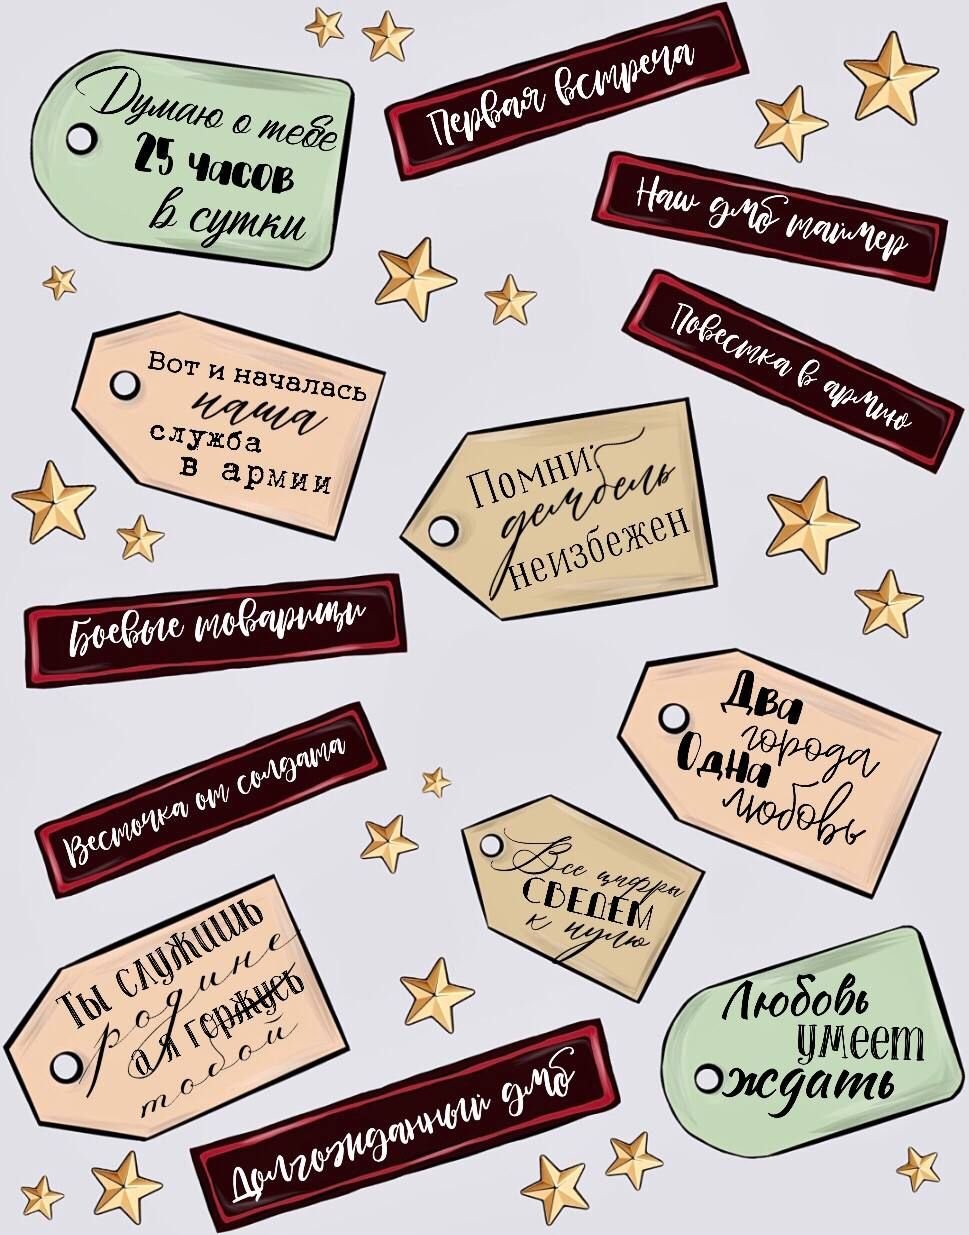 Думаю о тебе
25 часов
в сутки
Первая встреча
Наш дмб таймер
Повестка в армию
Вот и началась
наша
служба
в армии
Помни:
дембель
неизбежен
Боевые товарищи
Два
города
Одна
любовь
Весточка от солдата
Все цифры
СВЕДЕМ
к нулю
Ты служишь
родине
а я горжусь
тобой
Любовь
умеет
ждать
Долгожданный дмб